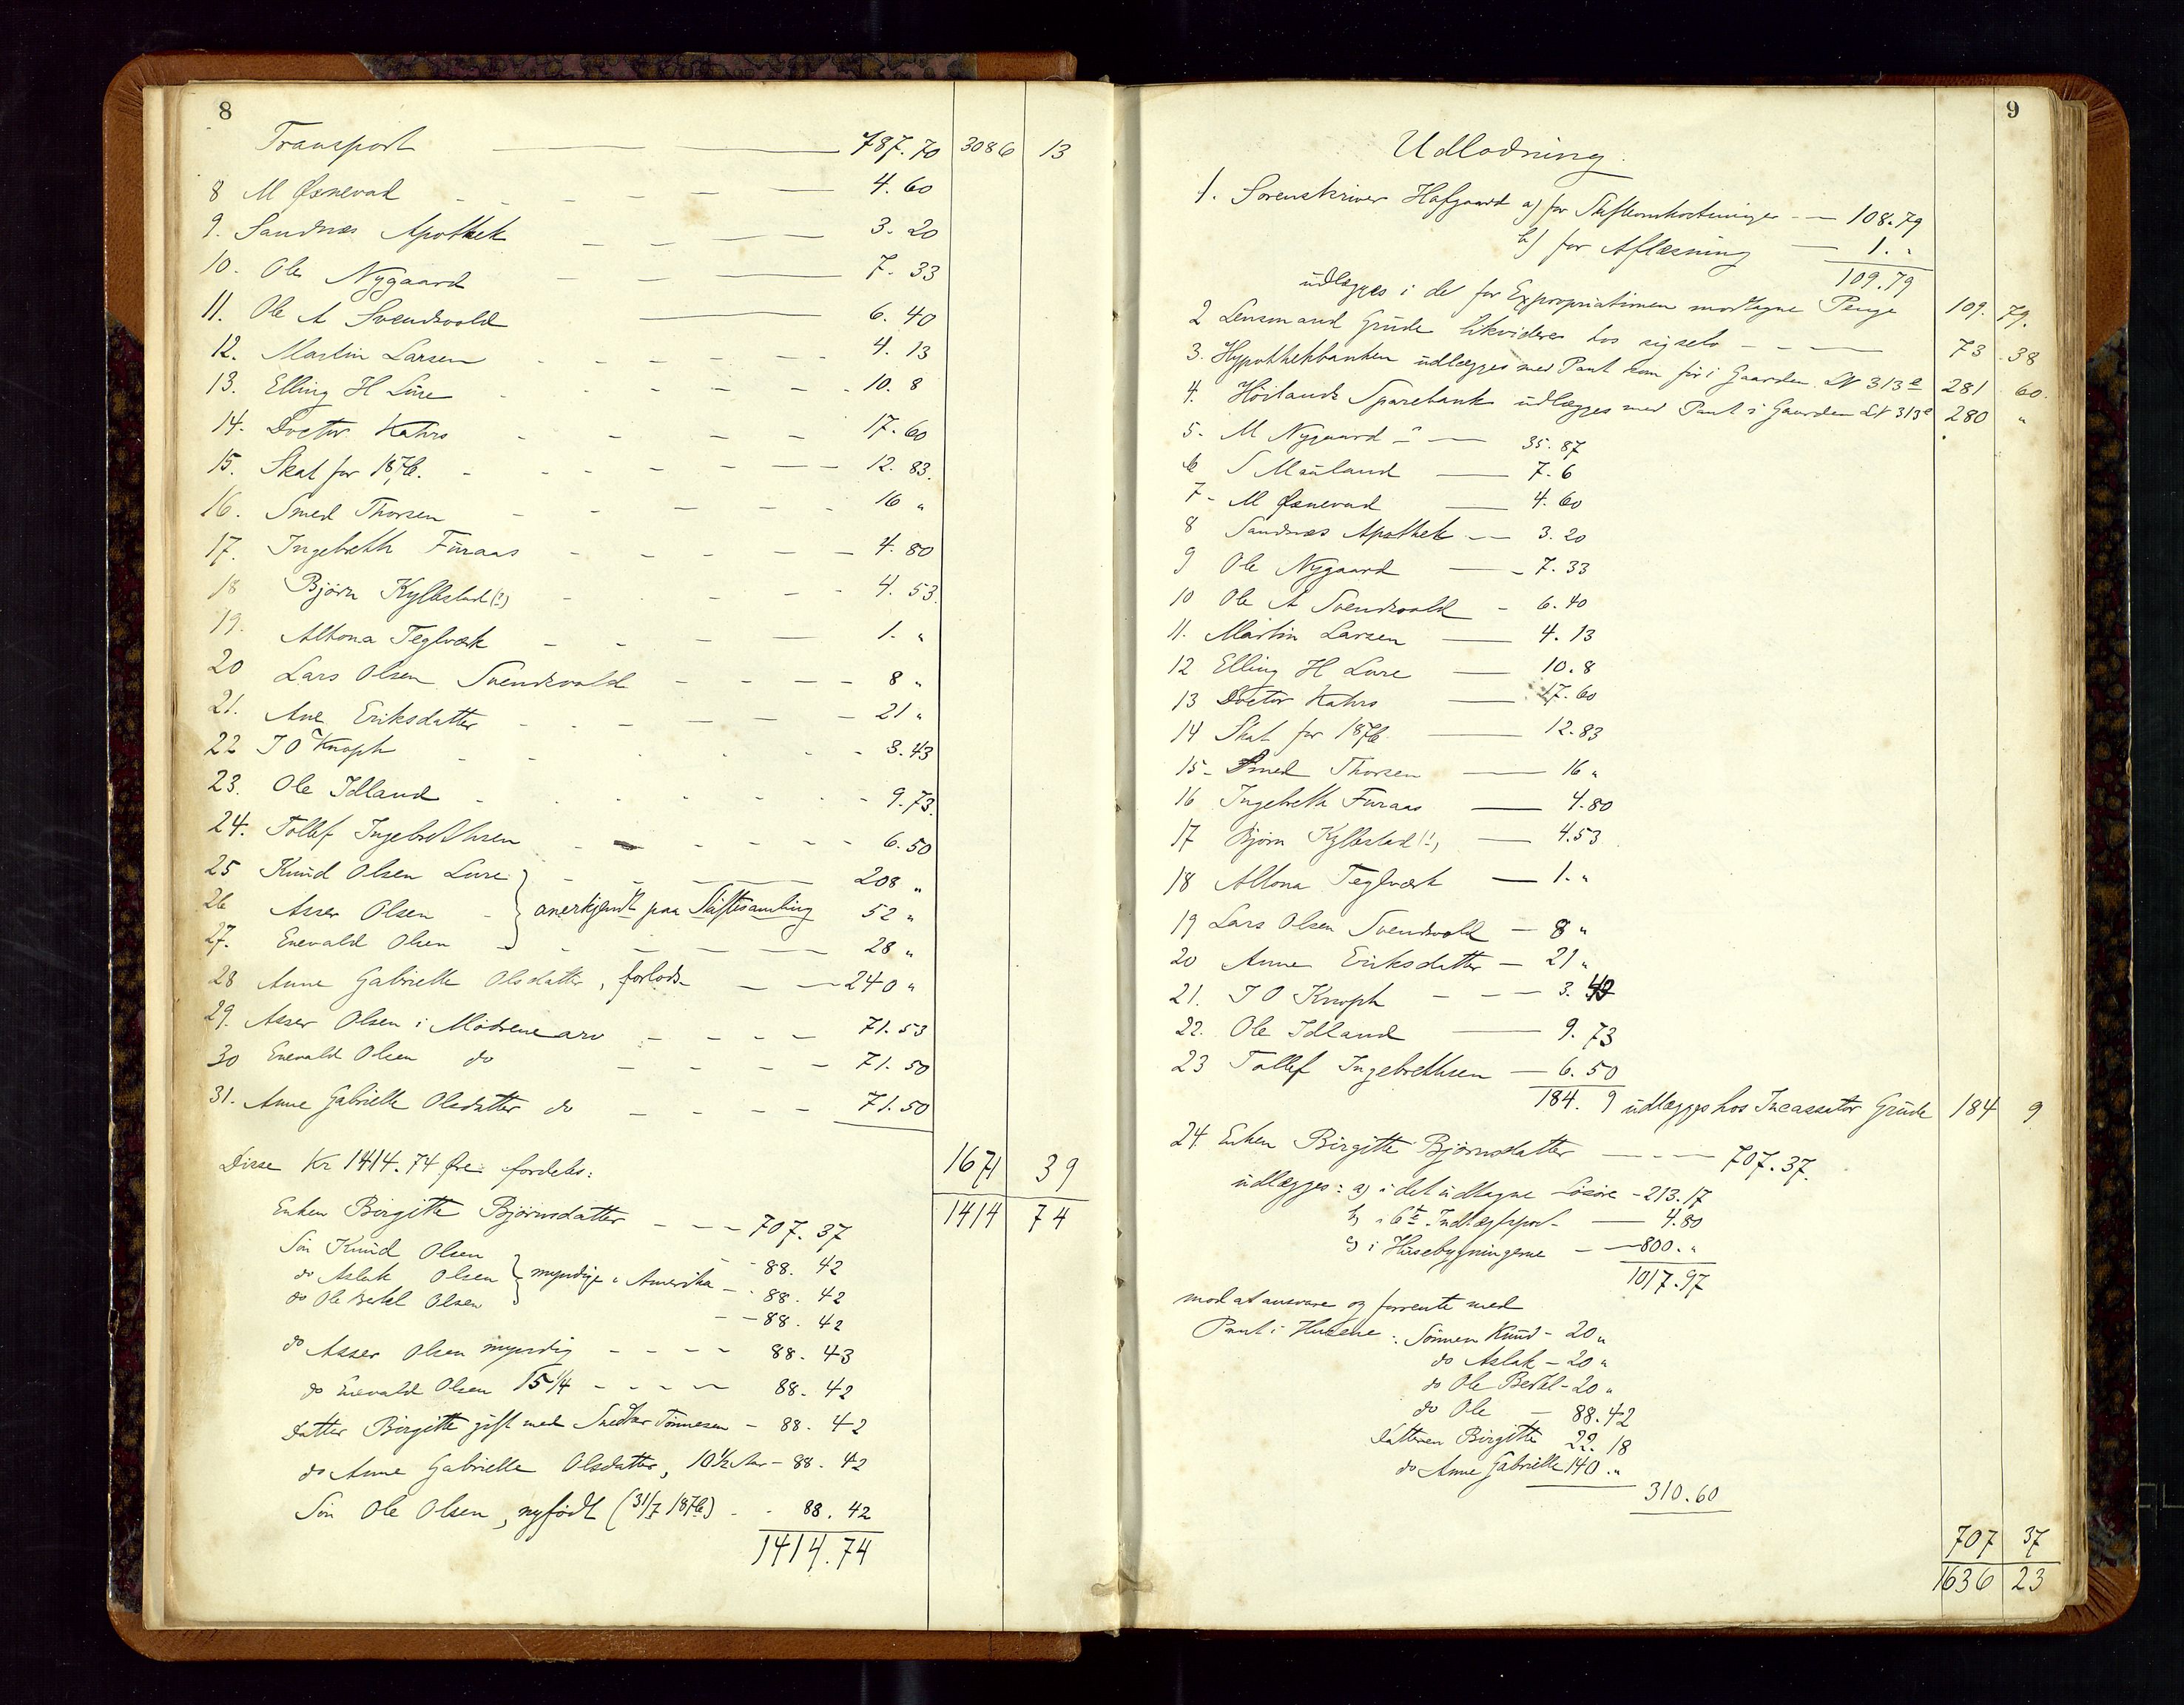 8
Transport — 787.70 3086 13
8 M Øsnevad - 4.60
9. Sandnæs Apothek - 3.20
10. Ole Nygaard - 7.33
11. Ole A Svendsvold - 6.40
12. Martin Larsen - 4.13
13. Elling H Lure - 10.8
14. Doctor Kahrs - 17.60
15. Skat for 1876. - 12.83.
16. Smed Thorsen - 16 "
17. Ingebreth Furaas - 4.80
18 Bjørn Kylbstad (!) - 4.53.
19. Altona Teglværk - 1. "
20 Lars Olsen Svendsvold - 8 "
21. Ane Eriksdatter - 21 "
22 J O Knoph - 3.43
23. Ole Idland - 9.73.
24. Tollef Ingebrethsen - 6.50
25 Knud Olsen Lure - 208 "
26 Asser Olsen - } anerkjendt paa Skiftesamling 52 "
27. Enevald Olsen - 28 "
28 Anne Gabrielle Olsdatter, forlods - 240 "
29. Asser Olsen i Mødrenearv - 71.53
30 Enevald Olsen do - 71.50
31. Anne Gabrielle Olsdatter do - 71.50
1671 39
Disse Kr 1414.74 Øre fordeles:
1414 74
Enken Birgitte Bjørnsdatter - 707.37
Søn Knud Olsen - 88.42
do Aslak Olsen } myndige i Amerika - 88.42
do Ole Bertel Olsen - 88.42
do Asser Olsen myndig - 88.43
do Enevald Olsen 15 1/4 - 88.42
Datter Birgitte gift med Tønnesen - 88.42
do Anne Gabrielle Olsdatter, 10 1/2 Aar - 88.42
Søn Ole Olsen, nyfødt (31/7 1876) - 88.42
1414.74
9
Udlodning.
1. Sorenskriver Hafgaard a) for Skifteomkostninger - 108.79
b) for Aflæsning - 1. "
109.79
udlægges i de for Expropriationen modtagne Penge 109. 79.
2 Lensmand Grude likviderer hos sig selv - 73. 38
3. Hypothekbanken udlægges med Pant som før i Gaarden LN 313a 281 60.
4. Høilands Sparebank udlægges med Pant i Gaarden LN 313a 280 "
5. M Nygaard - 35.87
6 S Mauland - 7.6
7. M Øsnevad - 4.60
8 Sandnæs Apothek - 3.20
9 Ole Nygaard - 7.33
10 Ole A Svendsvold - 6.40
11. Martin Larsen - 4.13
12 Elling H Lure - 10.8
13 Doctor Kahrs - 17.60
14 Skat for 1876 - 12.83
15. Smed Thorsen - 16 "
16 Ingebreth Furaas - 4.80
17 Bjørn Kylbstad (!) - 4.53
18 Altona Teglværk - 1. "
19 Lars Olsen Svendsvold - 8 "
20 Anne Eriksdatter - 21 "
21. J O Knoph - 3.43
22. Ole Idland - 9.73
23 Tollef Ingebrethsen - 6.50
184. 9 udlægges hos Incassator Grude 184 9
24 Enken Birgitte Bjørnsdatter - 707.37.
udlægges: a) i det udtagne Løsøre - 213.17
b) i 6te Indtægtspost - 4.80
c) i Husebygningerne - 800. "
1017.97
mod at ansvare og forrente med
Pant i Husene: Sønnen Knud - 20 "
do Aslak - 20 "
do Ole Bertel - 20 "
do Ole - 88.42
Datteren Birgitte 22.18
do Anne Gabrielle 140. "
310.60
707 37
1636 23